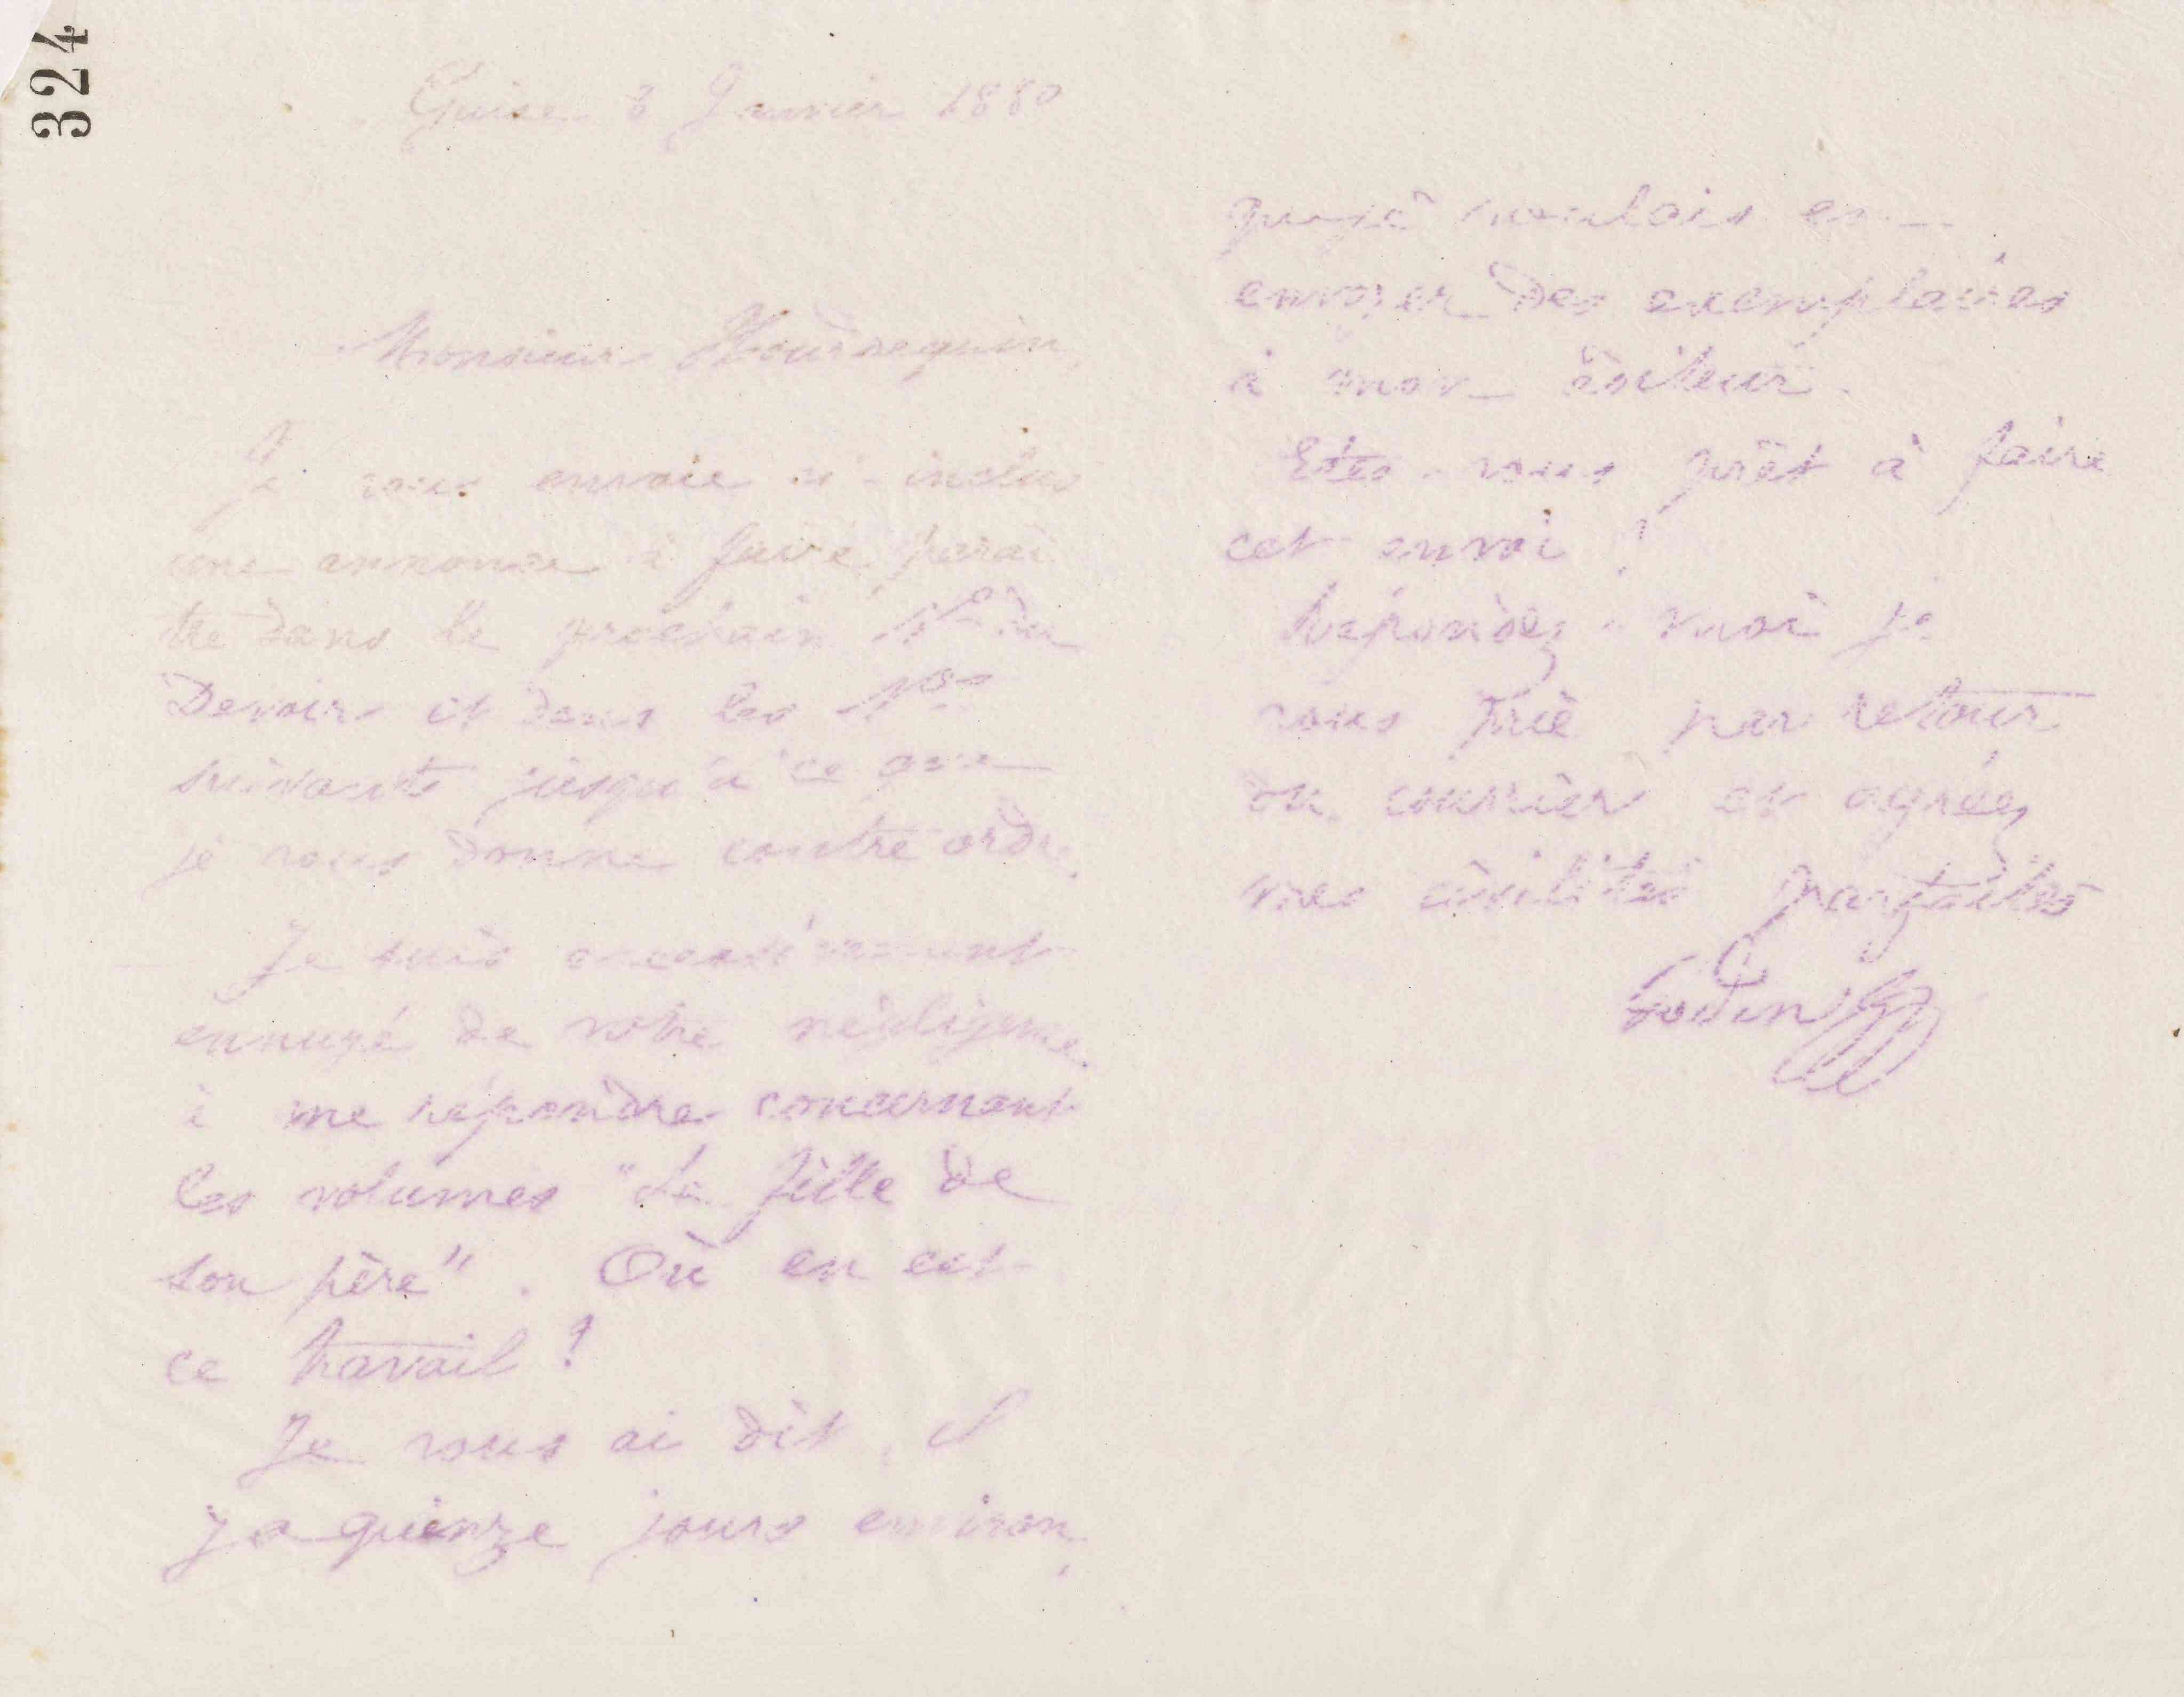 324
Guise 3 Janvier 1880
Monsieur Hourdequin,
Je vous envoie ci-inclus
une annonce à faire paraî
tre dans le prochain No du
Devoir et dans les Nos
suivants jusqu'à ce que
je vous donne contre ordre.
Je suis excessivement
ennuyé de votre négligence
à me répondre concernant
les volumes "La fille de
son père". Où en est
ce travail ?
Je vous ai dit, il
y a quinze jours environ,
que je voulais en
envoyer des exemplaires
à mon éditeur.
Etes-vous prêt à faire
cet envoi ?
Répondez-moi je
vous prie par retour
du courrier et agréez
mes civilités parfaites
Godin